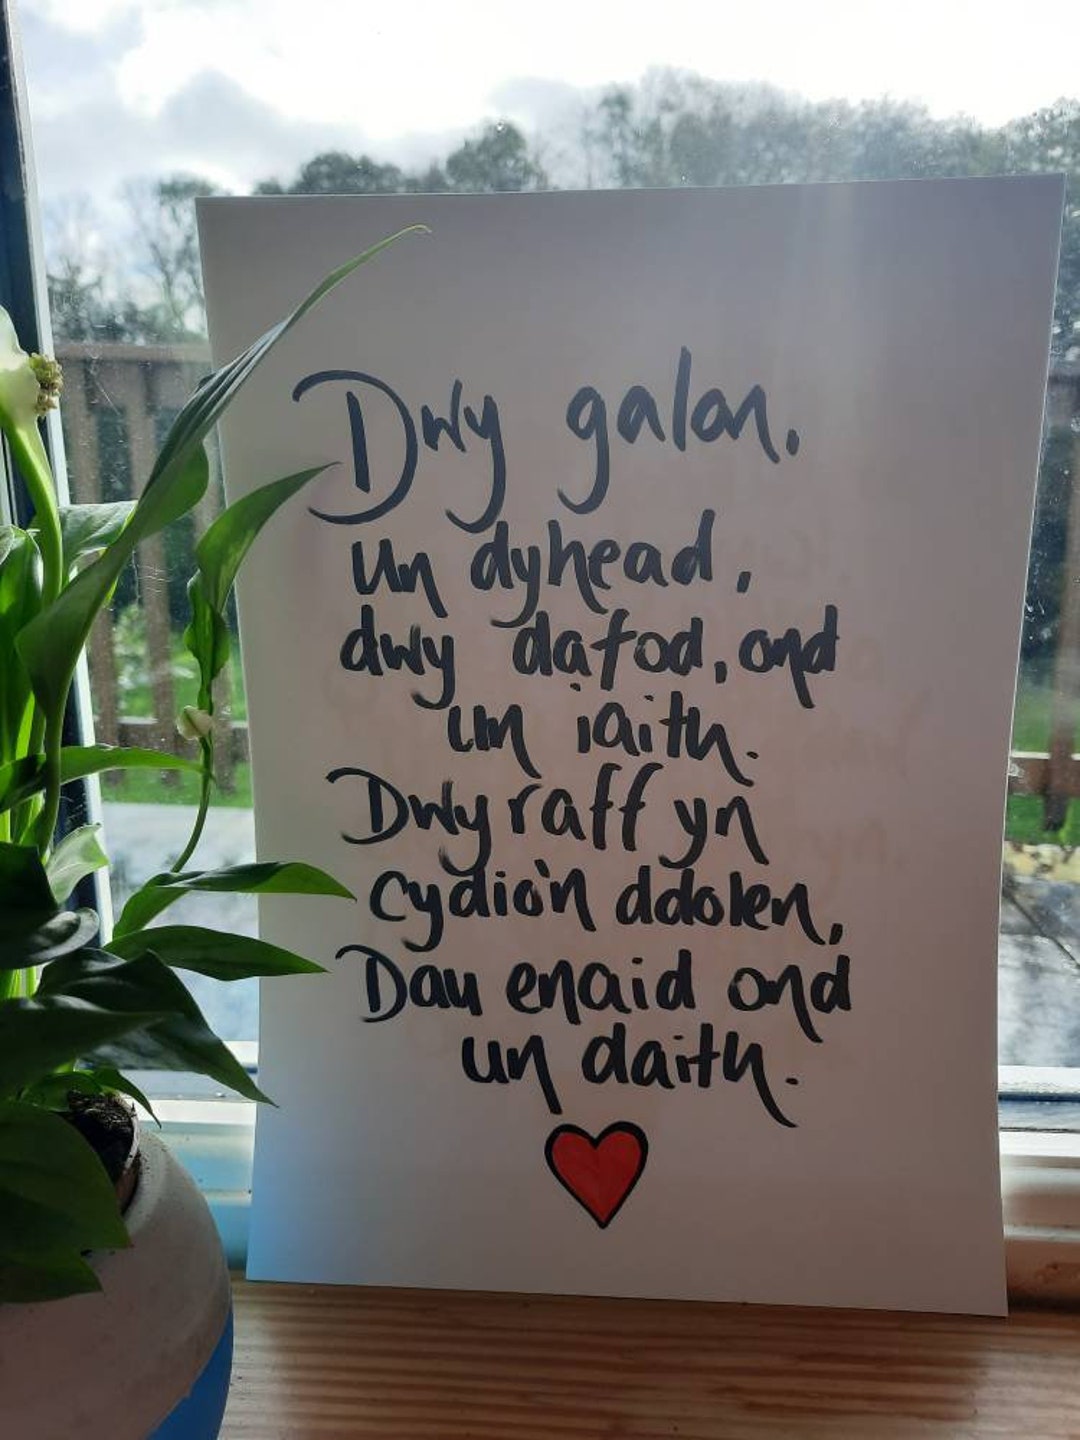 Dwy galon,
un dyhead,
dwy dafod, ond
un iaith.
Dwy raff yn
cydio'n ddolen,
Dau enaid ond
un daith.